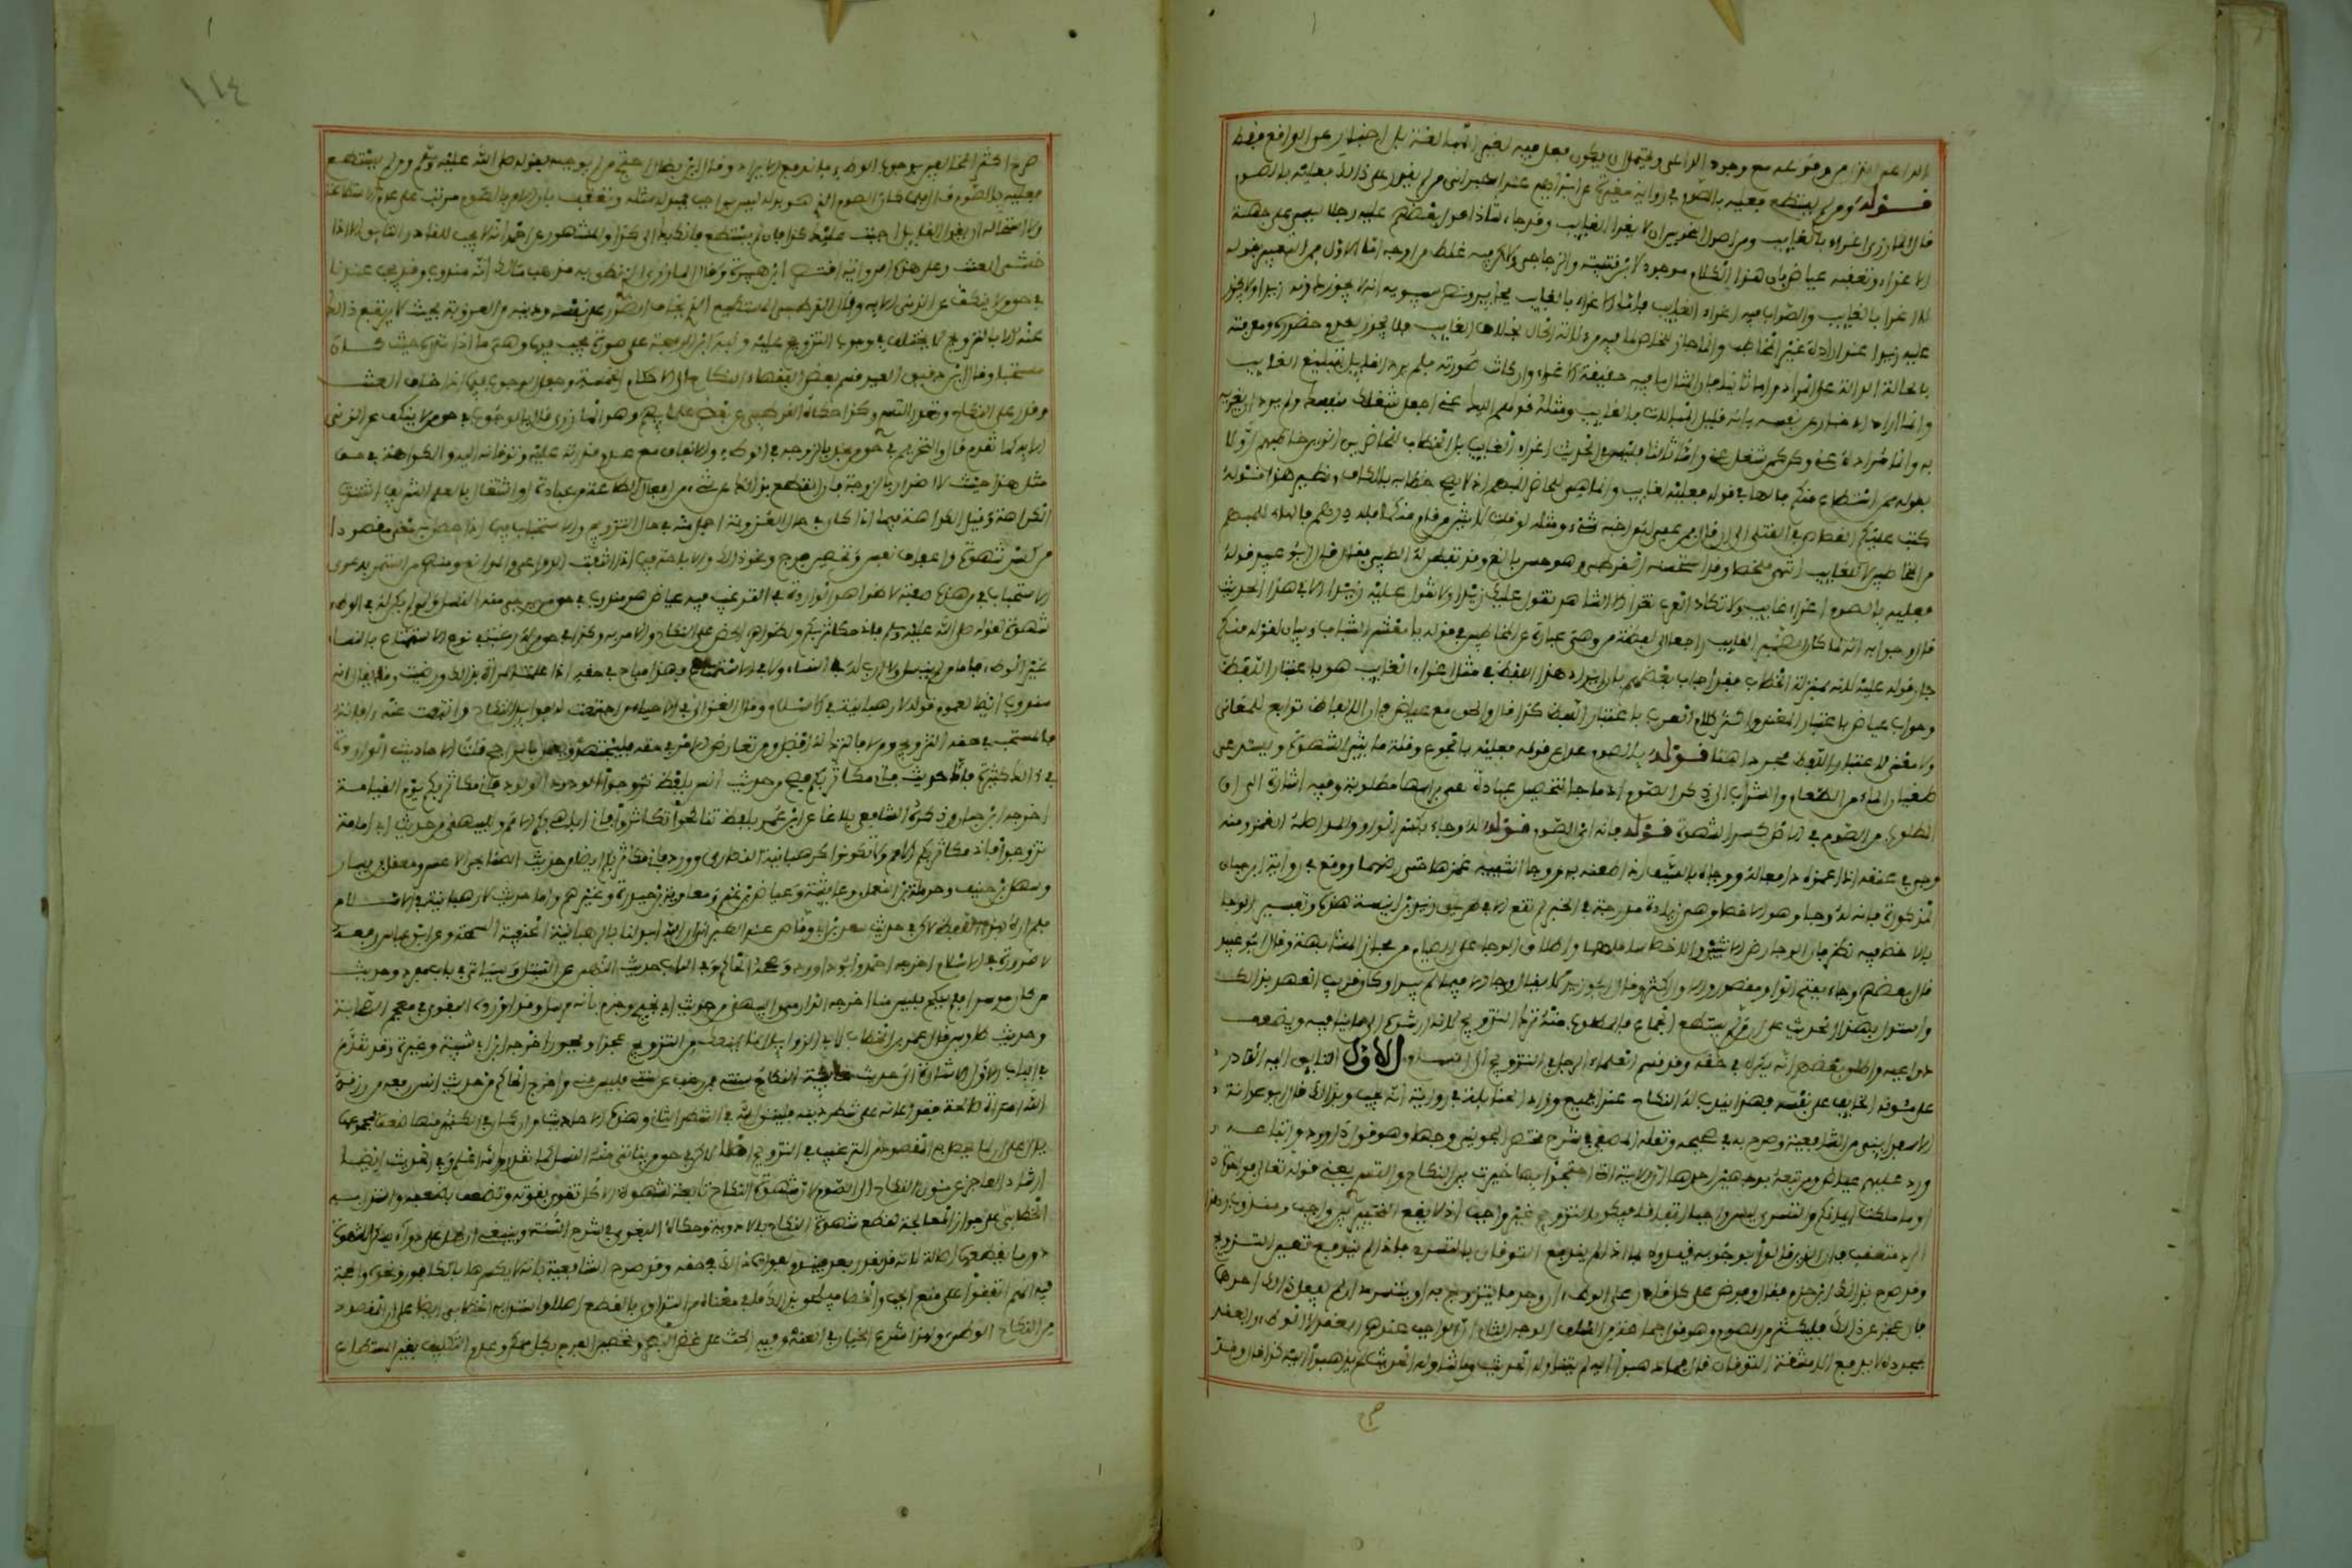 الداعي الزائد من وقوعه مع وجود الداعي ويحتمل أن يكون فعل فيه لغير المبالغة بل إخبار عن الواقع فقط
قوله ومن لم يستطع فعليه بالصوم في رواية مغيرة عن إبراهيم عند الطبراني ومن لم يقدر على ذلك فعليه بالصوم
قال المازري إغراء بالغايب ومن أصول النحويين أن لا يغرا الغايب وقد جاء شاذا قول بعضهم عليه رجلا ليسي على جهة
الإغراء وتعقبه عياض بأن هذا الكلام موجود لابن قتيبة والزجاجي ولاكن فيه غلط من أوجه أما الأول فمن التعبير بقوله
لا إغرا بالغايب والصواب فيه إغراء الغايب فأما الإغراء بالغايب فجايز ونص سيبويه أنه لا يجوز دونه زيدا ولا يجوز
عليه زيدا عند إرادة غير المخاطب وإنما جاز للحاضر لما فيه من دلالة الحال بخلاف الغايب فلا يجوز لعدم حضوره ومعرفته
بالحالة الدالة على المراد وأما ثانيا فإن المثال ما فيه حقيقة الإغراء وإن كانت صورته فلم يرد القايل تبليغ الغايب
وإنما أراد الإخبار عن نفسه بأنه قليل المبالاة بالغايب ومثله قولهم إليك عني أي اجعل شغلك بنفسك ولم يرد أن يغريه
به وإنما مراده دعني وكن كمن شغل عني وأما ثالثا فليس في الحديث إغراء الغايب بل الخطاب للحاضرين الذين خاطبهم أولا
بقوله من استطاع منكم فالهاء في قوله فعليه ليست لغايب وإنما هي للحاضر المبهم إذ لا يصح خطابه بالكاف ونظير هذا قوله
كتب عليكم القصاص في القتلى إلى أن قال فمن عفي له من أخيه شيء ومثله لو قلت لاثنين من قام منكما فله درهم فالهاء للمبهم
من المخاطبين لا لغايب انتهى ملخصا وقد استحسنه القرطبي وهو حسن بالغ وقد تفطن له الطيبي فقال قال أبو عبيد قوله
فعليه بالصوم إغراء غايب ولا تكاد العرب تغرا إلا الشاهد تقول عليك زيدا ولا تقول عليه زيدا إلا في هذا الحديث
قال وجوابه أنه لما كان الضمير الغايب راجعا إلى لفظة من وهي عبارة عن المخاطبين في قوله يا معشر الشباب وبيان لقوله منكم
جاز قوله عليه لأنه بمنزلة الخطاب وقد أجاب بعضهم بأن إيراد هذا اللفظ في مثال إغراء الغايب هو باعتبار اللفظ
وجواب عياض باعتبار المعنى وأكثر كلام العرب باعتبار اللفظ كذا قال والحق مع عياض فإن الألفاظ توابع للمعاني
ولا معنى لاعتبار اللفظ مجردا هنا قوله بالصوم عدل عن قوله فعليه بالجوع وقلة ما يثير الشهوة ويستدعي
طغيان الماء من الطعام والشراب إلى ذكر الصوم إذ ما جاء لتحصيل عبادة هي برأسها مطلوبة وفيه إشارة إلى أن
المطلوب من الصوم في الأصل كسر الشهوة قوله فإنه أي الصوم قوله له وجاء بكسر الواو والمد أصله الغمز ومنه
وجي في عنقه إذا غمزه دافعا له ووجاه بالسيف إذا طعنه به ووجا أنثييه غمزهما حتى رضهما ووقع في رواية ابن حبان
المذكورة فإنه له وجا وهو الإخصا وهي زيادة مدرجة في الخبر لم تقع إلا في طريق زيد بن أبي أنيسة هذه وتفسير الوجا
بالإخصا فيه نظر فإن الوجا رض الأنثيين والإخصا سلهما وإطلاق الوجا على الصيام من مجاز المشابهة وقال أبو عبيد
قال بعضهم وجا بفتح الواو مقصور والأول أكثر وقال أبو زيد لا يقال وجا إلا فيما لم يبرا وكان قريب العهد بذلك
واستدل بهذا الحديث على أن من لم يستطع الجماع فالمطلوب منه ترك التزويج لأنه أرشده إلى ما ينافيه ويضعف
دواعيه وأطلق بعضهم أنه يكره في حقه وقد قسم العلماء الرجل في التزويج إلى أقسام الأول التايق إليه القادر
على مؤنه الخايف على نفسه فهذا يندب له النكاح عند الجميع وزاد الحنابلة في رواية أنه يجب وبذلك قال أبو عوانة
الإسفرايني من الشافعية وصرح به في صحيحه ونقله المصعبي في شرح مختصر الجويني وجها وهو قول داود وأتباعه
ورد عليهم عياض ومن تبعه بوجهين أحدهما أن الآية التي احتجوا بها خيرت بين النكاح والتسري يعني قوله تعالى فواحدة
أو ما ملكت أيمانكم والتسري ليس واجبا اتفاقا فيكون التزويج غير واجب إذ لا يقع التخيير بين واجب ومندوب وهذا
الرد متعقب فإن الذين قالوا بوجوبه قيدوه بما إذا لم يندفع التوقان بالتسري فإذا لم يندفع تعين التزويج
وقد صرح بذلك ابن حزم فقال وفرض على كل قادر على الوطء إن وجد ما يتزوج به أو يتسرى أن يفعل أحدهما
فإن عجز عن ذلك فليكثر من الصوم وهو قول جماعة من السلف الوجه الثاني أن الواجب عندهم العقد لا الوطء والعقد
بمجرده لا يدفع مشقة التوقان قال فما ذهبوا إليه لم يتناوله الحديث وما تناوله الحديث لم يذهبوا إليه كذا قال وقد
صرح أكثر المخالفين بوجوب الوطء فاندفع الإيراد وقال ابن بطال احتج من لم يوجبه بقوله صلى الله عليه وسلم ومن لم يستطع
فعليه بالصوم قال فلما كان الصوم الذي هو بدله ليس بواجب فمبدله مثله وتعقب بأن الأمر بالصوم مرتب على عدم الاستطاعة
ولا استحالة أن يقول القايل أوجبت عليك كذا فإن لم تستطع فأندبك إلى كذا والمشهور عن أحمد أنه لا يجب للقادر التايق إلا إذا
خشي العنت وعلى هذه الرواية اقتصر ابن هبيرة وقال المازري الذي نطق به مذهب مالك أنه مندوب وقد يجب عندنا
في حق من لا ينكف عن الزنى إلا به وقال القرطبي المستطيع الذي يخاف الضرر على نفسه ودينه من العزوبة بحيث لا يرتفع ذلك
عنه إلا بالتزويج لا يختلف في وجوب التزويج عليه ونبه ابن الرفعة على صورة يجب فيها وهي ما إذا نذره حيث كان
مستحبا وقال ابن دقيق العيد قسم بعض الفقهاء النكاح إلى الأحكام الخمسة وجعل الوجوب فيما إذا خاف العنت
وقدر على النكاح وتعذر التسري وكذا حكاه القرطبي عن بعض علمائهم وهو المازري قال فالوجوب في حق من لا ينكف عن الزنى
إلا به كما تقدم قال والتحريم في حق من يخل بالزوجة في الوطء والإنفاق مع عدم قدرته عليه وتوقانه إليه والكراهة في حق
مثل هذا حيث لا إضرار بالزوجة فإن انقطع بذلك عن شيء من أفعال الطاعة من عبادة أو اشتغال بالعلم اشتدت
الكراهة وقيل الكراهة فيما إذا كان في حال العزوبة أجمل منه في حال التزويج والاستحباب فيما إذا حصل به معنى مقصودا
من كسر شهوة وإعفاف نفس وتحصين فرج ونحو ذلك والإباحة فيما إذا انتفت الدواعي والموانع ومنهم من استمر بدعوى
الاستحباب فيمن هذه صفته للظواهر الواردة في الترغيب فيه قال عياض هو مندوب في حق من يرجى منه النسل ولو لم يكن له في الوطء
شهوة لقوله صلى الله عليه وسلم فإني مكاثر بكم ولظواهر الحض على النكاح والأمر به وكذا في حق من له رغبة في نوع من الاستمتاع بالنساء
غير الوطء فأما من لا ينسل ولا أرب له في النساء ولا في الاستمتاع فهذا مباح في حقه إذا علمت المرأة بذلك ورضيت وقد يقال إنه
مندوب أيضا لعموم قوله لا رهبانية في الإسلام وقال الغزالي في الإحياء من اجتمعت له فوايد النكاح وانتفت عنه آفاته
فالمستحب في حقه التزويج ومن لا فالترك له أفضل ومن تعارض الأمر في حقه فليجتهد ويعمل بالراجح قلت الأحاديث الواردة
في ذلك كثيرة فأما حديث فإني مكاثر بكم فصح من حديث أنس بلفظ تزوجوا الودود الولود فإني مكاثر بكم يوم القيامة
أخرجه ابن حبان وذكره الشافعي بلاغا عن ابن عمر بلفظ تناكحوا تكاثروا فإني أباهي بكم الأمم وللبيهقي من حديث أبي أمامة
تزوجوا فإني مكاثر بكم الأمم ولا تكونوا كرهبانية النصارى وورد فإني مكاثر بكم أيضا من حديث الصنابحي ابن الأعسر ومعقل بن يسار
وسهل بن حنيف وحرملة بن النعمان وعائشة وعياض بن غنم ومعاوية بن حيدة وغيرهم وأما حديث لا رهبانية في الإسلام
فلم أره بهذا اللفظ لاكن في حديث سعد بن أبي وقاص عند الطبراني إن الله أبدلنا بالرهبانية الحنيفية السمحة وعن ابن عباس رفعه
لا صرورة في الإسلام أخرجه أحمد وأبو داود وصححه الحاكم وفي الباب حديث النهي عن التبتل وسيأتي في باب مفرد وحديث
من كان موسرا فلم ينكح فليس منا أخرجه الدارمي والبيهقي من حديث ابن أبي نجيح وجزم بأنه مرسل وقد أورده البغوي في معجم الصحابة
وحديث طاوس قال عمر بن الخطاب لأبي الزوايد إنما يمنعك من التزويج عجز أو فجور أخرجه ابن أبي شيبة وغيره وقد تقدم
في الباب الأول الإشارة إلى حديث عايشة النكاح سنتي فمن رغب عن سنتي فليس مني وأخرج الحاكم من حديث أنس رفعه من رزقه
الله امرأة صالحة فقد أعانه على شطر دينه فليتق الله في الشطر الثاني وهذه الأحاديث وإن كان في الكثير منها ضعف فمجموعها
يدل على أن لما يحصل به المقصود من الترغيب في التزويج أصلا لاكن في حق من يتأتى منه النسل كما تقدم والله أعلم وفي الحديث أيضا
إرشاد العاجز عن مؤن النكاح إلى الصوم لأن شهوة النكاح تابعة لشهوة الأكل تقوى بقوته وتضعف بضعفه واستدل به
الخطابي على جواز المعالجة لقطع شهوة النكاح بالأدوية وحكاه البغوي في شرح السنة وينبغي أن يحمل على دواء يسكن الشهوة
دون ما يقطعها أصالة لأنه قد يقدر بعد فيندم لفوات ذلك في حقه وقد صرح الشافعية بأنه لا يكسرها بالكافور ونحوه والحجة
فيه أنهم اتفقوا على منع الجب والخصا فيلحق بذلك ما في معناه من التداوي بالقطع أصلا واستدل به الخطابي أيضا على أن المقصود
من النكاح الوطء ولهذا شرع الخيار في العنة وفيه الحث على غض البصر وتحصين الفرج بكل ممكن وعدم التكليف بغير المستطاع